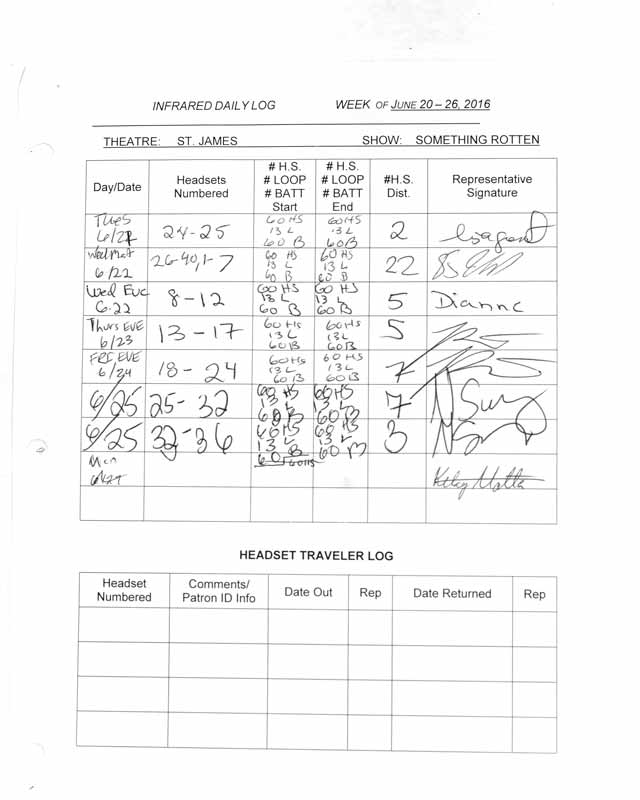 INFRARED DAILY LOG WEEK OF JUNE 20 – 26, 2016
THEATRE: ST. JAMES SHOW: SOMETHING ROTTEN
Day/Date Headsets Numbered # H.S. # LOOP # BATT Start # H.S. # LOOP # BATT End #H.S. Dist. Representative Signature
Tues 6/21 24-25 60HS 13 L 60 B 60HS 13 L 60B 2
Wed Mat 6/22 26-40,1-7 60 HS 13 L 60 B 60 HS 13 L 60 B 22
Wed Eve 6.22 8-12 60 HS 13 L 60 B 60 HS 13 L 60 B 5 Dianne
Thurs EVE 6/23 13-17 60 HS 13 L 60B 60HS 13L 60B 5
FRI EVE 6/24 18-24 60HS 13L 60B 60 HS 13L 60B 7
6/25 25-32 60 HS 13 L 60 B 60HS 13 L 60 B 7
6/25 32-36 60HS 13 L 60 B 60HS 13 L 60 B 3
60HS
HEADSET TRAVELER LOG
Headset Numbered Comments/ Patron ID Info Date Out Rep Date Returned Rep